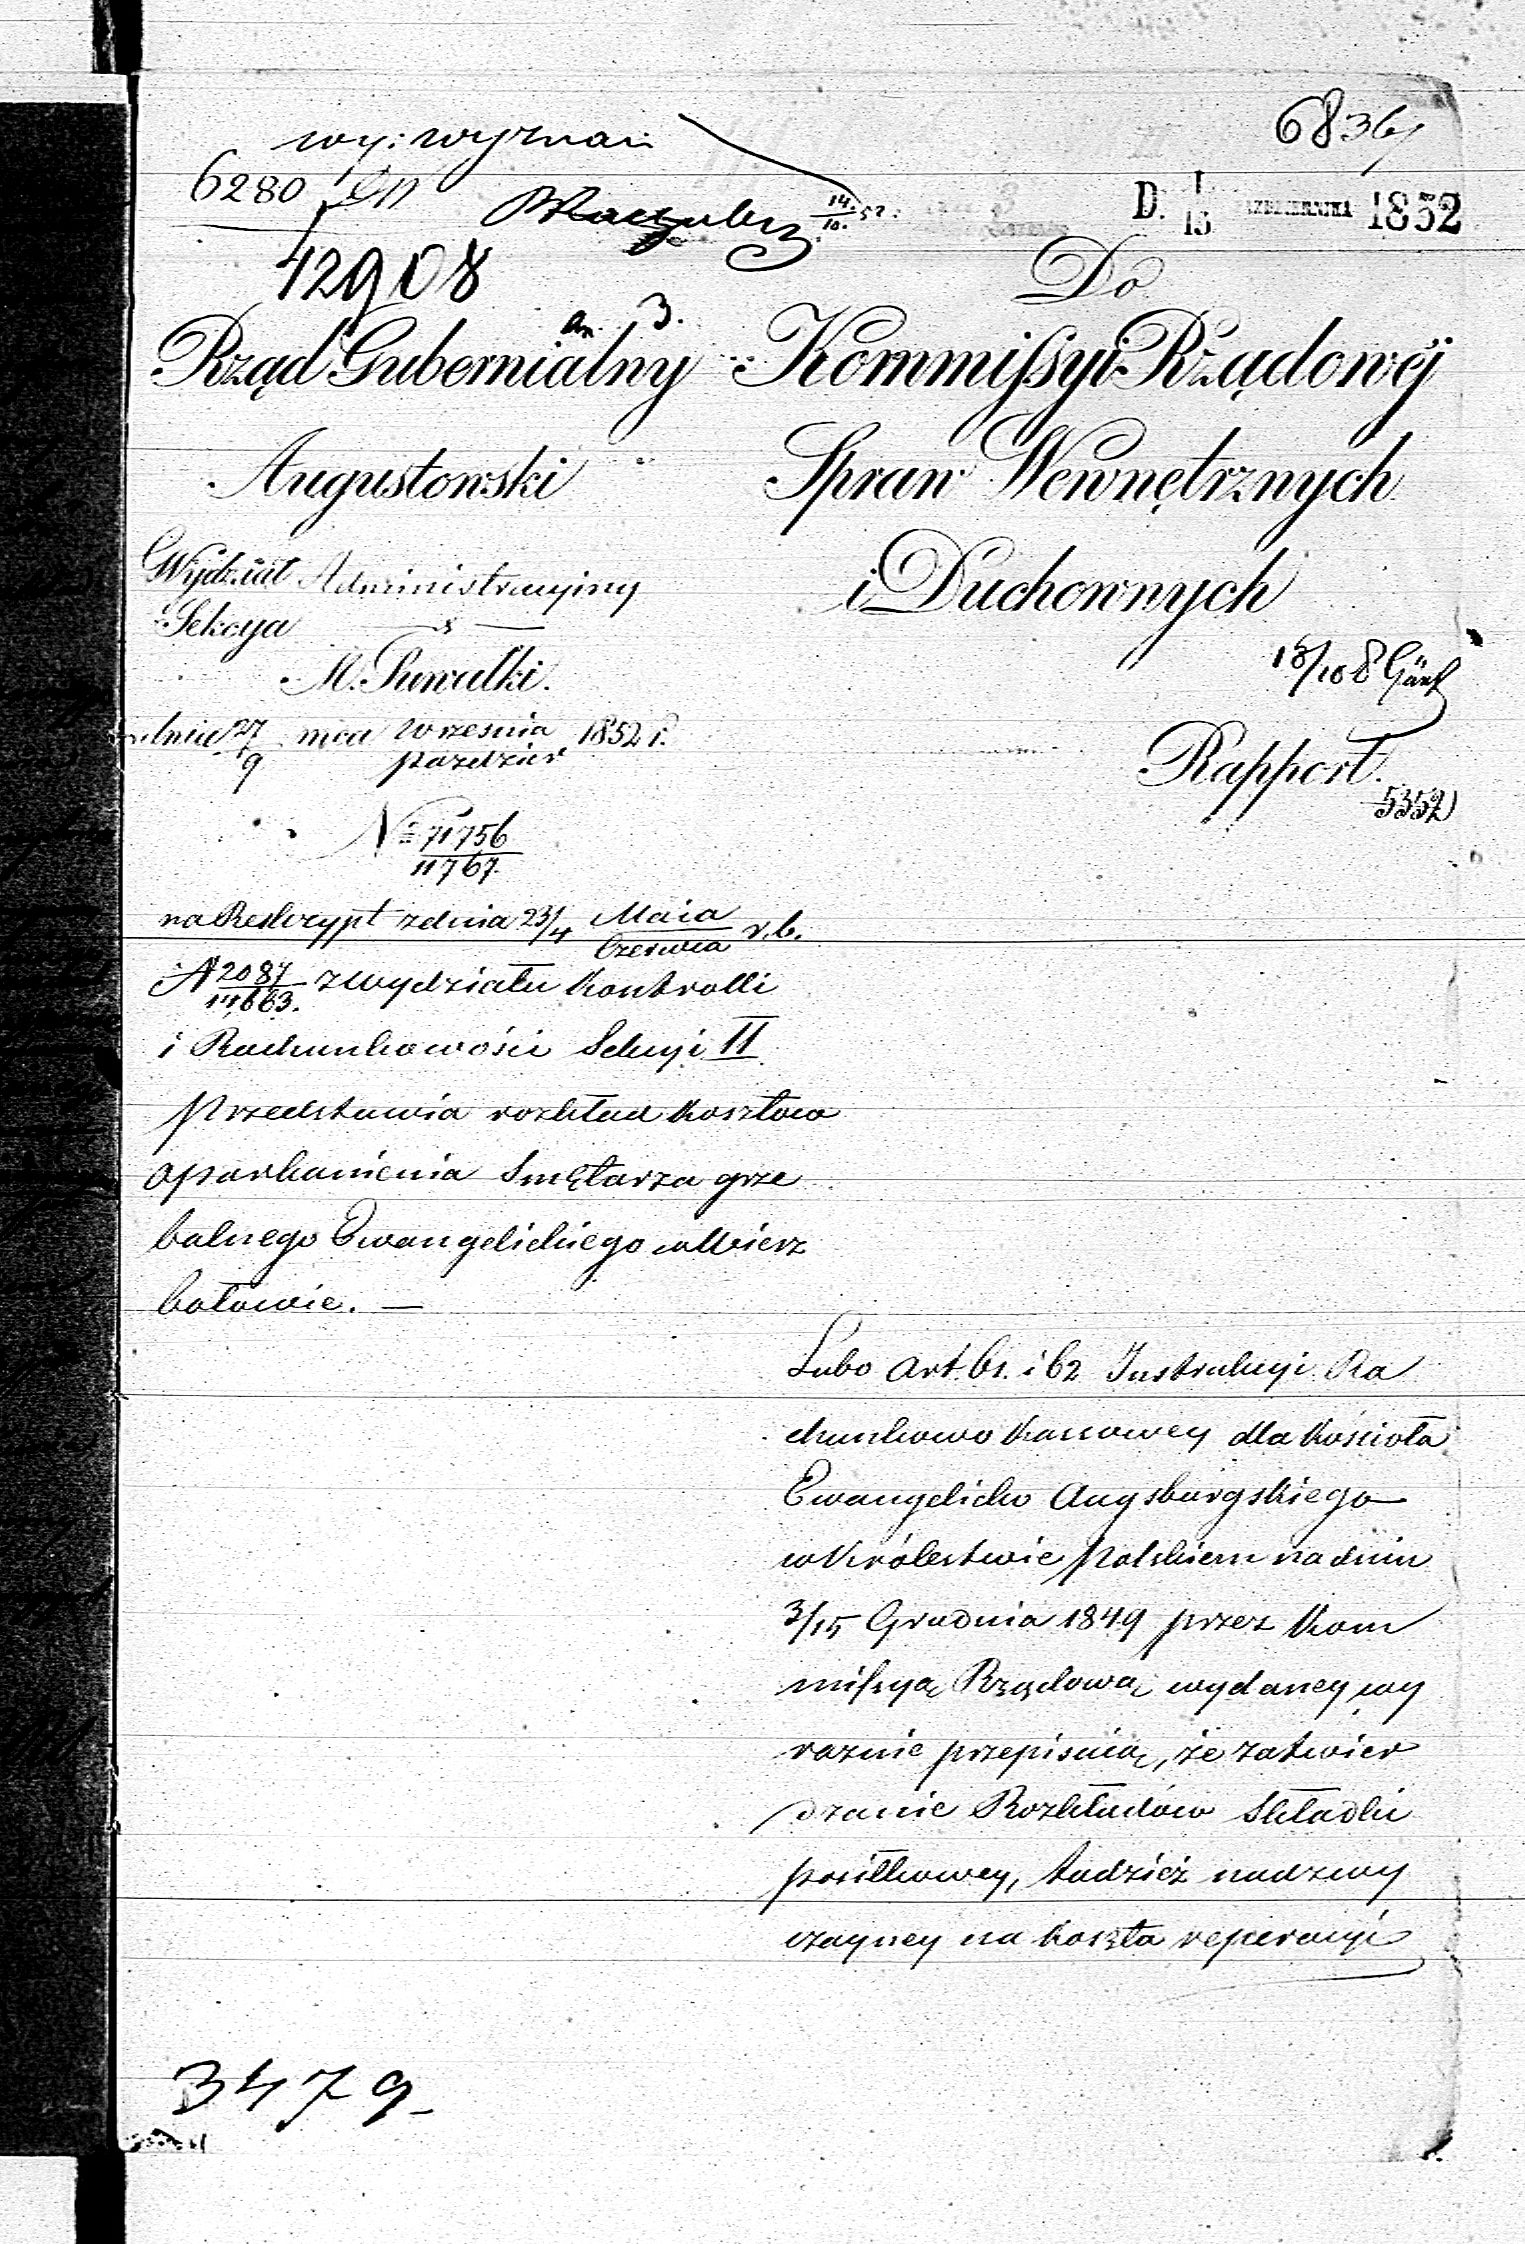 wy: wyznań
6836
6280
14/10 52.
D. 1/13 PAŹDZIERNIKA 1852
12908
an. 3.
Do
Rząd Gubernialny
Augustowski
Kommissyi Rządowéj
Spraw Wewnętrznych
i Duchownych
Wydział Administracyjny
Sekcya
M. Suwałki.
dnia 27/9 mca Września/Paździer 1852 r.
18/10
Rapport.
5352
№ 71756/11767.
na Reskrypt z dnia 23/4 Maia/Czerwca r.b.
№ 2087/11663. z Wydziału Kontrolli
i Rachunkowości Sekcyi II
przedstawia rozkład kosztów
oparkanienia Smętarza grze
balnego Ewangelickiego w Wierz
bołowie. —
Lubo Art. 61. i 62 Instrukcyi Ra
chunkowo Kassowey dla Kościoła
Ewangelicko Augsburgskiego
w Królestwie Polskiem na dniu
3/15 Grudnia 1849 przez Kom
missyą Rządową wydaney, wy
raznie przepisuią, że zatwier
dzanie Rozkładów Składki
posiłkowey, tudzież nadzwy
czayney na koszta reperacyi
3479